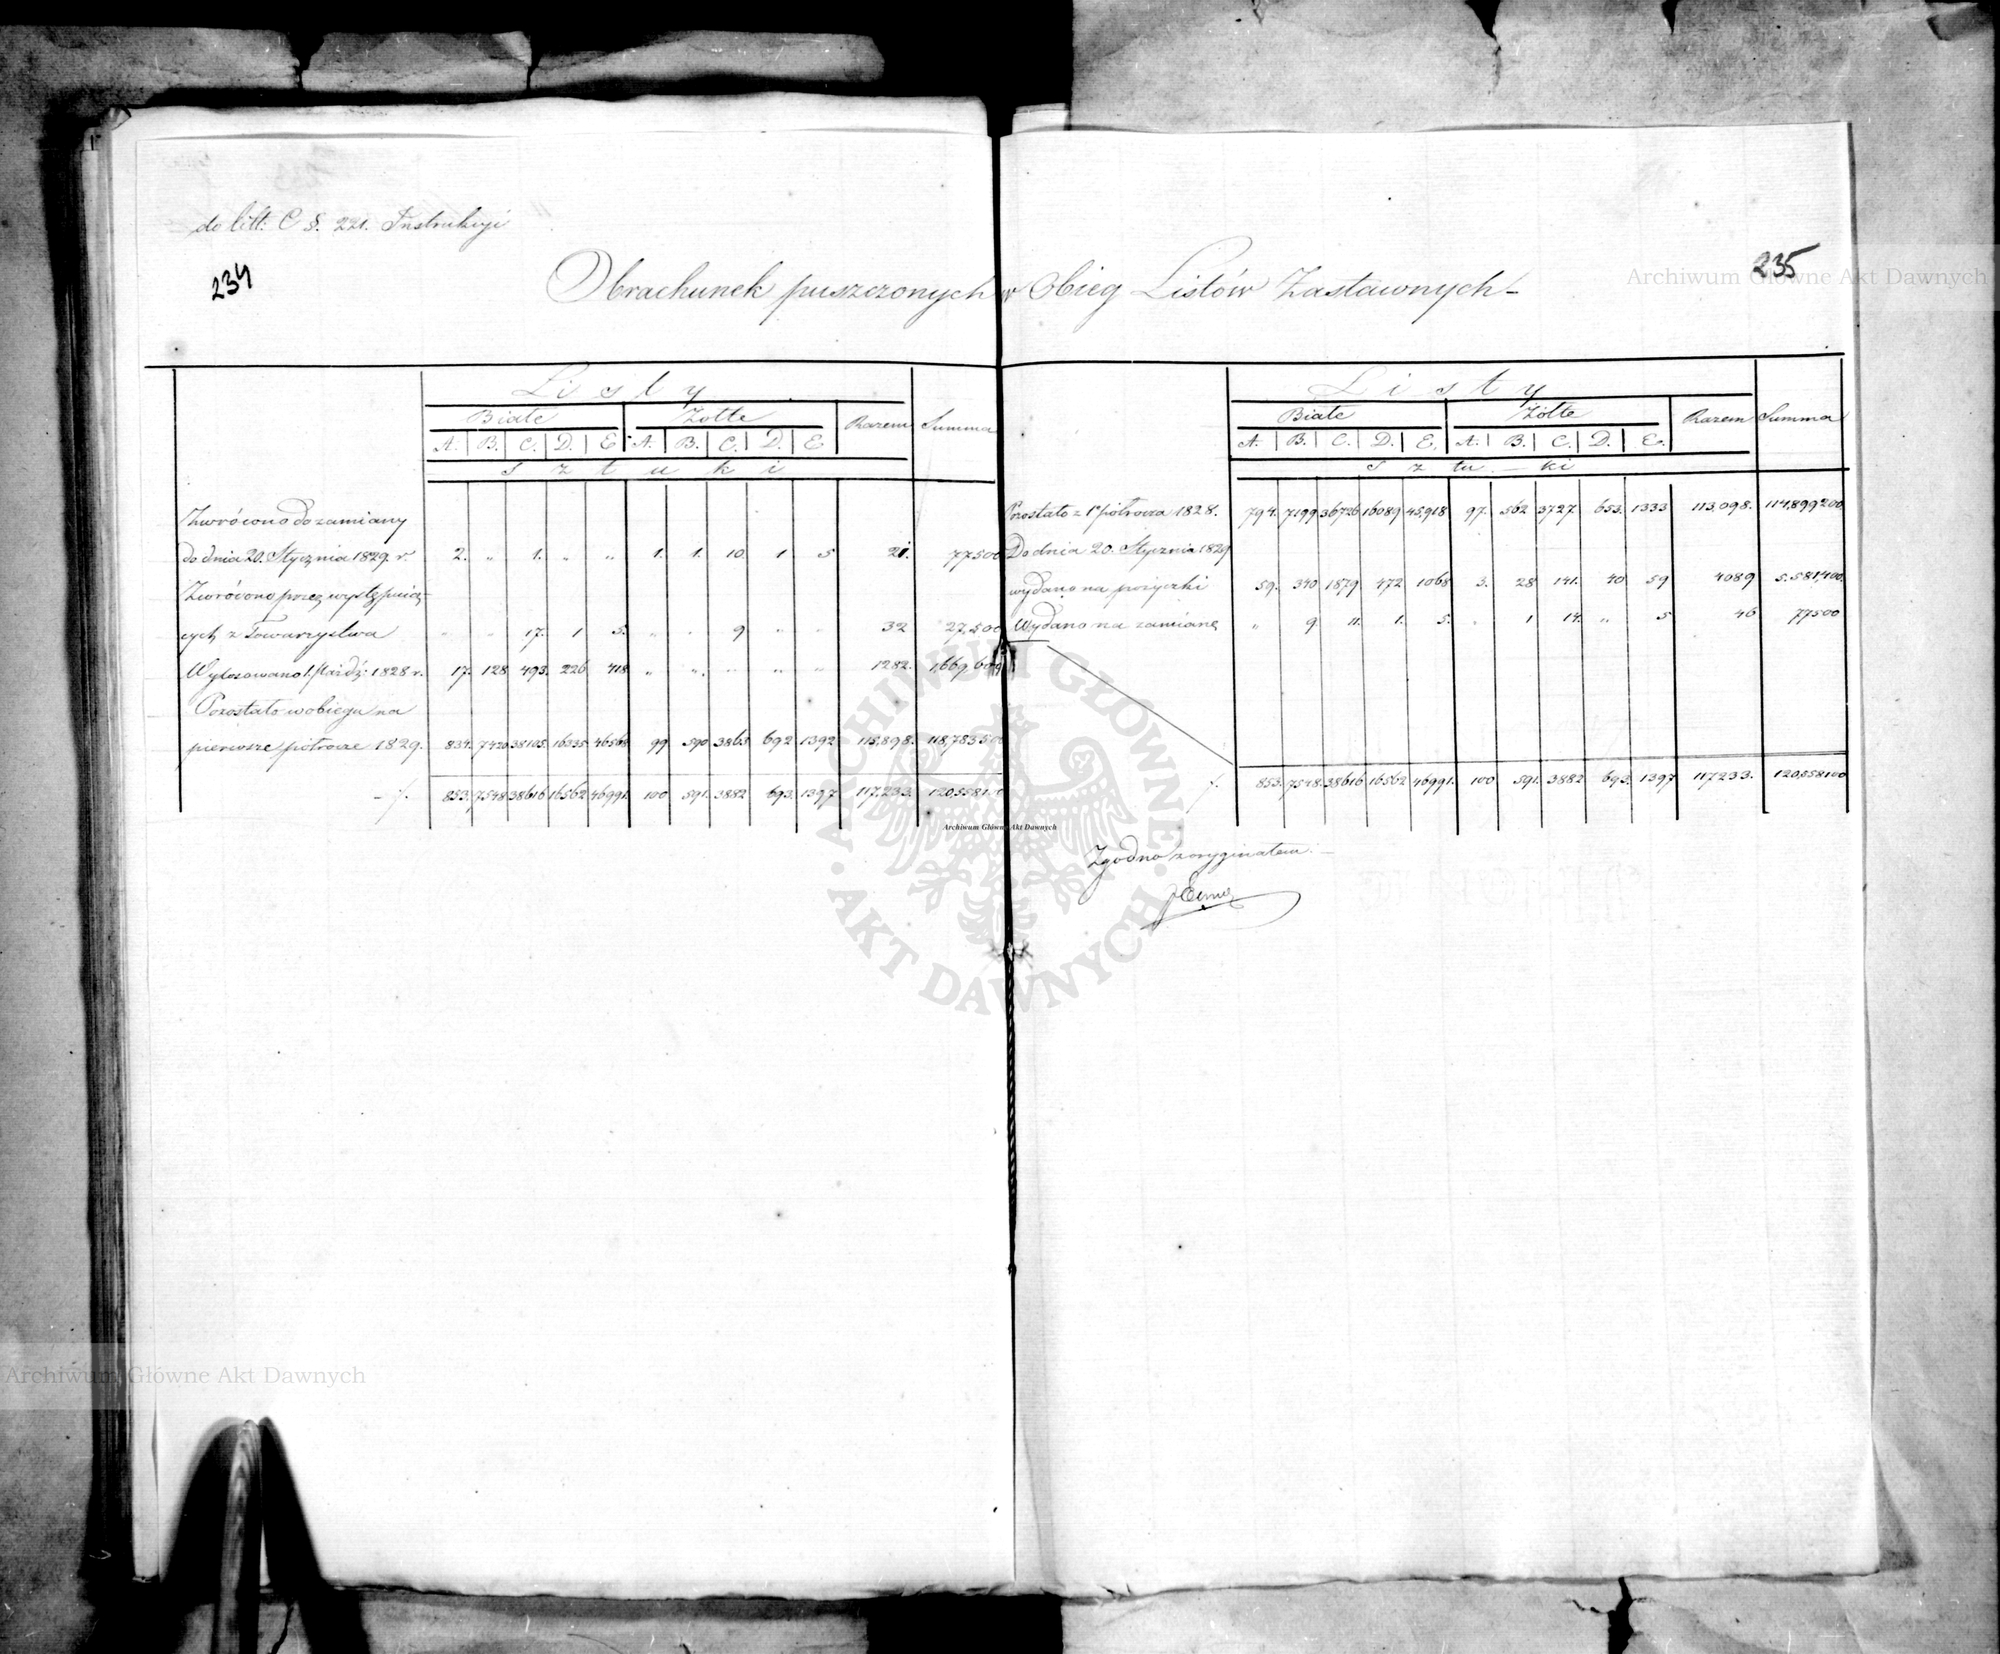 do litt: C §. 221. Instrukcyi
234
235
Obrachunek puszczonych w Obieg Listów Zastawnych
Listy
Białe Żółte Razem Summa
A. B. C. D. E A. B. C. D. E
Sztuki
Zwrócono do zamiany
do dnia 20. Stycznia 1829. r. 2. „ 1. „ „ 1. 1. 10. 1 5 21. 77500
Zwrócono przez występują-
cych z Towarzystwa „ „ 17. 1 5. „ „ 9 „ „ 32 27,500
Wylosowano 1. Paźdź: 1828 r. 17. 128 493. 226 418 „ „ „ „ „ 1282. 1,669,600
Pozostało w obiegu na
pierwsze półrocze 1829. 834. 7420 38105. 16335. 46568 99 590 3863 692 1392 115,898. 118,783500
853. 7548 38616 16562 46991. 100 591. 3882 693. 1397 117,233. 120,558100
Listy
Białe Żółte Razem Summa
A. B. C. D. E. A. B. C. D. E.
Sztuki
Pozostało z 1o półrocza 1828. 794. 7199 36726 16089 45,918 97. 562 3727. 653. 1333 113,098. 114,899200
Do dnia 20. Stycznia 1829
wydano na pożyczki 59. 340 1879. 472 1068 3. 28 141. 40 59 4089 5.581,400.
Wydano na zamianę „ 9 11. 1. 5. „ 1 14. „ 5 46 77500
853. 7548. 38616 16562 46991. 100 591. 3882 693. 1397 117233. 120,558100
Zgodno z oryginałem
Archiwum Główne Akt Dawnych
Archiwum Główne Akt Dawnych
Archiwum Główne Akt Dawnych
ARCHIWUM GŁÓWNE AKT DAWNYCH